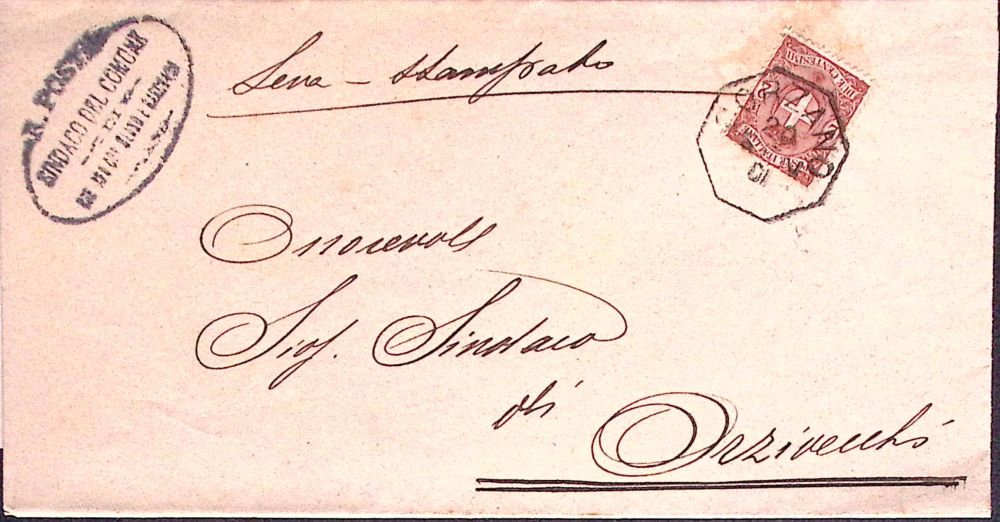 R. POSTE
SINDACO DEL COMUNE
DI
Leva - Stampato
DUE CENTESIMI
2
POSTE ITALIANE
20
01
Onorevole
Sig. Sindaco
di
Orzivecchi